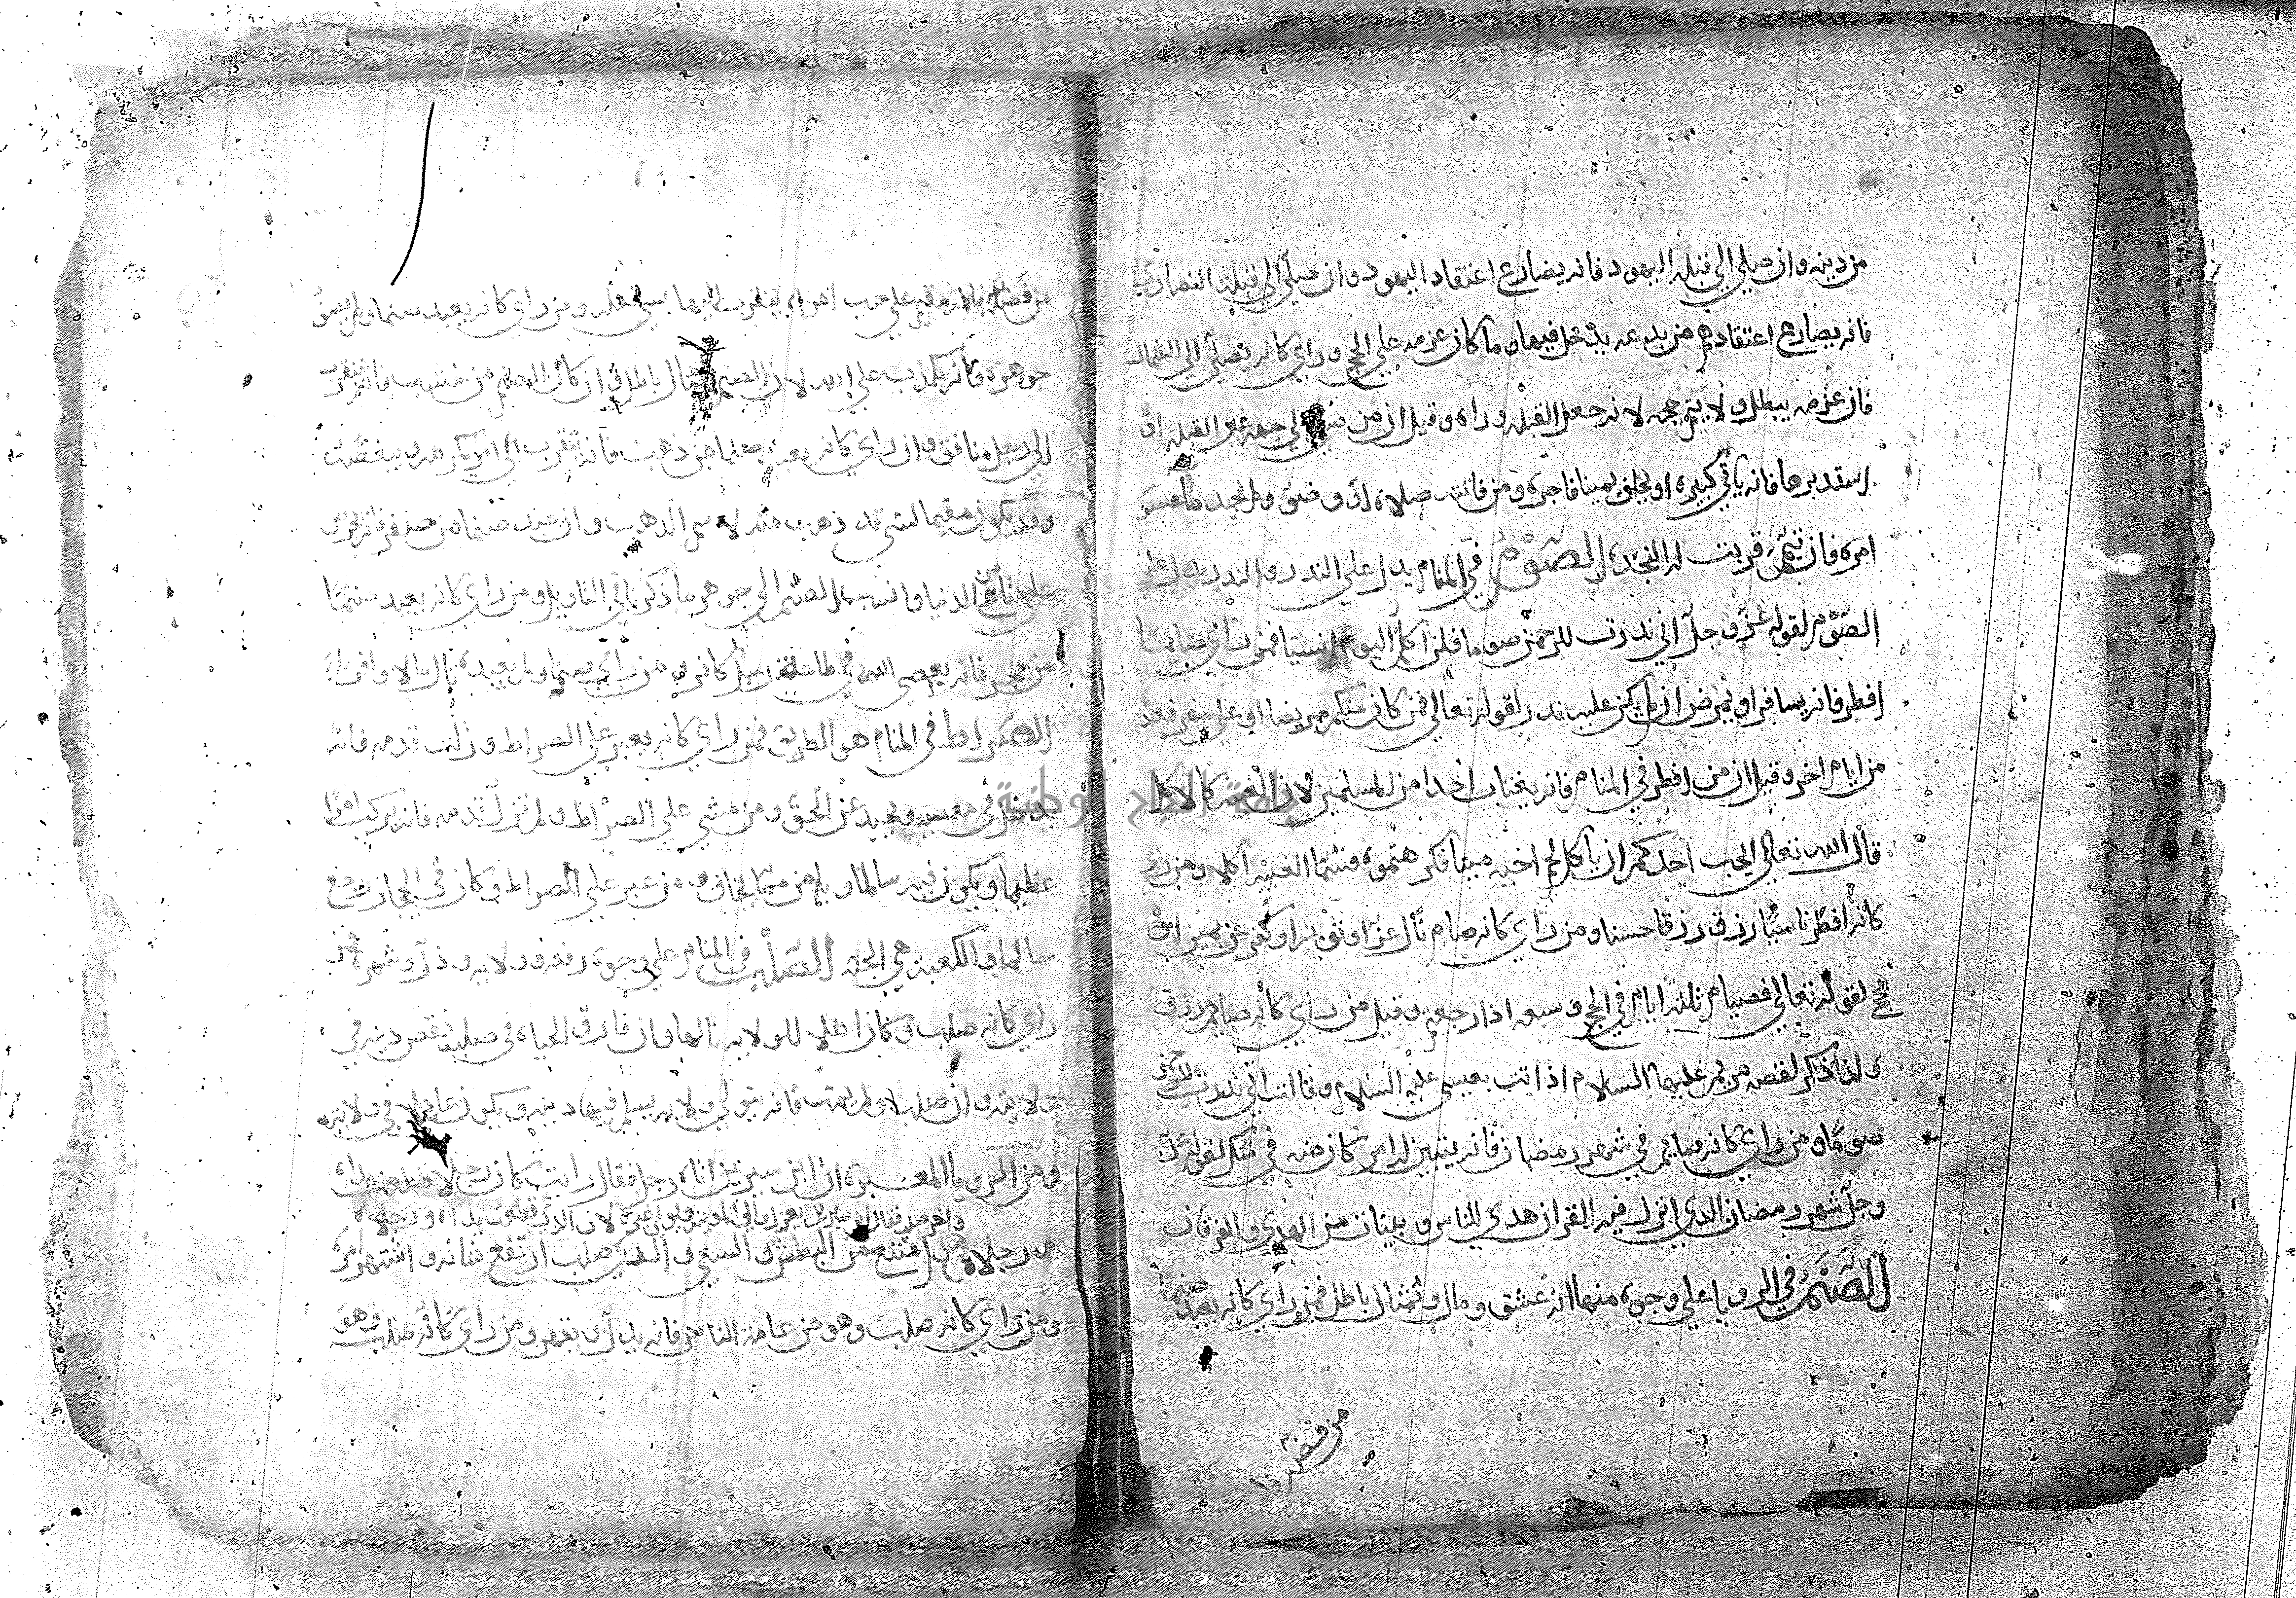 من دينه وان صلي الي قبلة اليهود فانه يضارع اعتقاد اليهود وان صلي الي قبلة النصاري
فانه يضارع اعتقادهم من بدعه يدخل فيها وما كان عزمه علي الحج وراي كانه يصلي الي الشمال
فان عزمه يبطل ولا يتم حجه لانه جعل القبله وراه وقيل ان من صلي الي جهة غير القبله او
استدبرها فانه ياتي كبيره او يحلف يمينا فاجره ومن فاتته صلاه او وضوء ولم يجد ما
امره فان تيمم قربت له النجده الصوم في المنام يدل علي النذر والنذر يدل علي
الصوم لقوله عز وجل اني نذرت للرحمن صوما فلن اكلم اليوم انسيا فمن راي صايما
افطر فانه يسافر او يمرض ان لم يكن عليه نذر لقوله تعالي فمن كان منكم مريضا او علي سفر فعدة
من ايام اخر وقيل ان من افطر في المنام فانه يغتاب احدا من المسلمين لان الغيبة كالاكل
قال الله تعالي ايحب احدكم ان ياكل لحم اخيه ميتا فكرهتموه فسما الغيبة اكلا ومن راي
كانه افطر ناسيا رزق رزقا حسنا ومن راي كانه صام نال عزا او تقوي او كفر عن يمين او
حج لقوله تعالي فصيام ثلثة ايام في الحج وسبعه اذا رجعتم وقيل من راي كانه صايم رزق
ولد اذكر لقصه مريم عليها السلام اذ اتت بعيسي عليه السلام وقالت اني نذرت للرحمن
صوما ومن راي كانه صايم في شهر رمضان فانه يتبين له امر كان منه في شك لقوله عز
وجل شهر رمضان الذي انزل فيه القران هدي للناس وبينات من الهدي والفرقان
الصنم في الرويا علي وجوه منها انه عشق ومال وتمثال باطل فمن راي كانه يعبد صنما
من فضة فا
من فضة فانه مقيم علي حب امراه يتقرب اليها بسي ومن راي كانه يعبد صنما ولم يعرف
جوهره فانه يكذب علي الله لان الصنم مثال باطل وان كان الصنم من خشب فانه يتقرب
الي رجل منافق وان راي كانه يعبد صنما من ذهب فانه يتقرب الي امر يكرهه ويبغضه
وقد يكون مقيما لشي قد ذهب منه لاسم الذهب وان عبد صنما من صفر فانه يحرص
علي متاع من الدنيا وانسب الصنم الي جوهره ما ذكرنا في التاويل ومن راي كانه يعبد صنما
من حجر فانه يعصي الله في طاعة رجل كافر ومن راي صنما ولم يعبده نال مالا وافرا
الصراط في المنام هو الطريق فمن راي كانه يعبر علي الصراط وزلت قدمه فانه
يدخل في معصيه ويحيد عن الحق ومن مشي علي الصراط ولم تزل قدمه فانه يركب امرا
عظيما ويكون فيه سالما ويامن مما يخاف ومن عبر علي الصراط وكان في الحجاز رجع
سالما والكعبة هي الجنه الصلب في المنام علي وجوه رفعه وولايه وذل وشهره فمن
راي كانه صلب وكان اهلا للولايه نالها وان فارق الحياه في صلبه نقص دينه في
ولايته وان صلب ولم يمت فانه يتولي ولايه يسلم فيها دينه ويكون عادلا في ولايته
ومن الرويا المعبرة ان ابن سيرين اتاه رجل فقال رايت كان رجلا قطعت يداه
ورجلاه واخر صلب فقال ان
يعزل والي المدينه ويولي غيره لان الذي قطعت يداه ورجلاه
امتنع من البطش والسعي والذي صلب ارتفع شانه واشتهر امره
ومن راي كانه صلب وهو من عامة الناس فانه يذل ويقهر ومن راي كانه صلب وهو